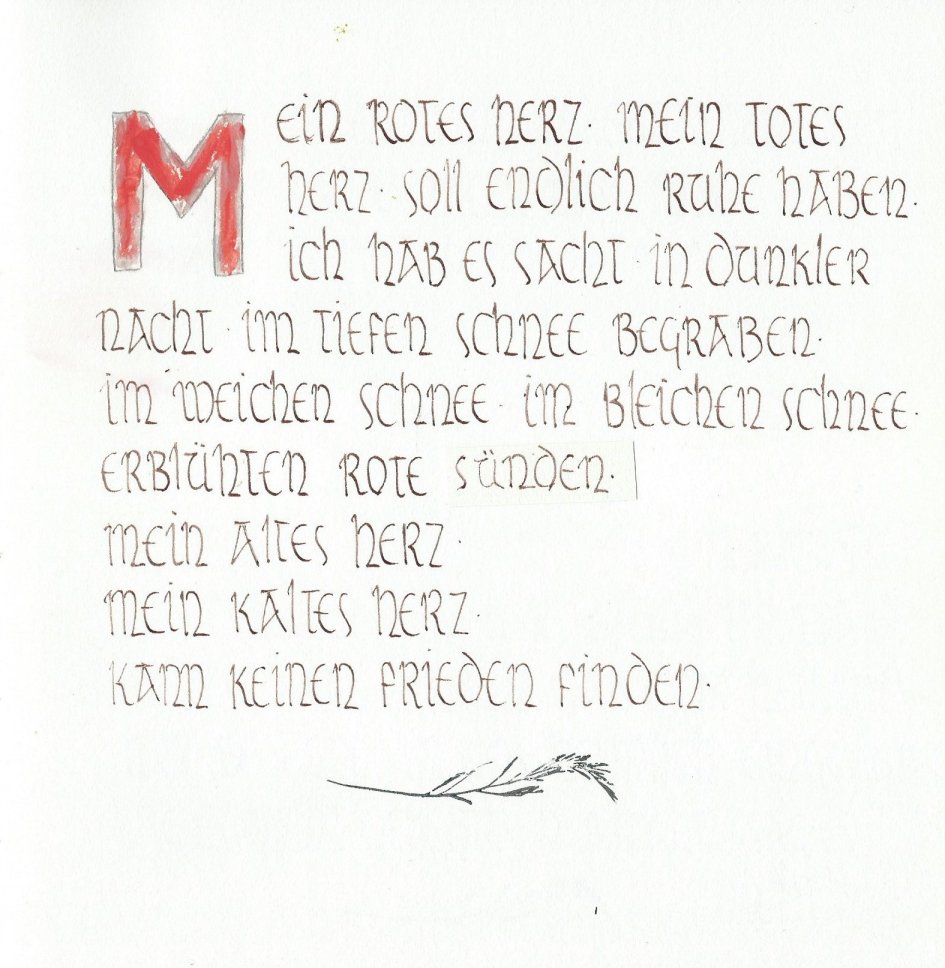 MEIN ROTES HERZ. MEIN TOTES
HERZ. SOLL ENDLICH RUHE HABEN.
ICH HAB ES SACHT. IN DUNKLER
NACHT. IM TIEFEN SCHNEE BEGRABEN.
IM WEICHEN SCHNEE. IM BLEICHEN SCHNEE.
ERBLÜHTEN ROTE SÜNDEN.
MEIN ALTES HERZ.
MEIN KALTES HERZ.
KANN KEINEN FRIEDEN FINDEN.